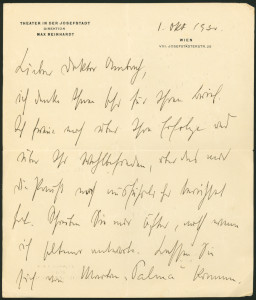 THEATER IN DER JOSEFSTADT
DIREKTION
MAX REINHARDT
1. Okt 1930.
WIEN
VIII. JOSEFSTÄDTERSTR. 26
Lieber Doktor
ich danke Ihnen sehr für Ihren Brief.
Ich freue mich über Ihre Erfolge und
über Ihr Wohlbefinden, über das mir
die noch ausführlicher berichtet
hat. Schreiben Sie mir öfter, auch wenn
ich seltener antworte. Lassen Sie
sich von